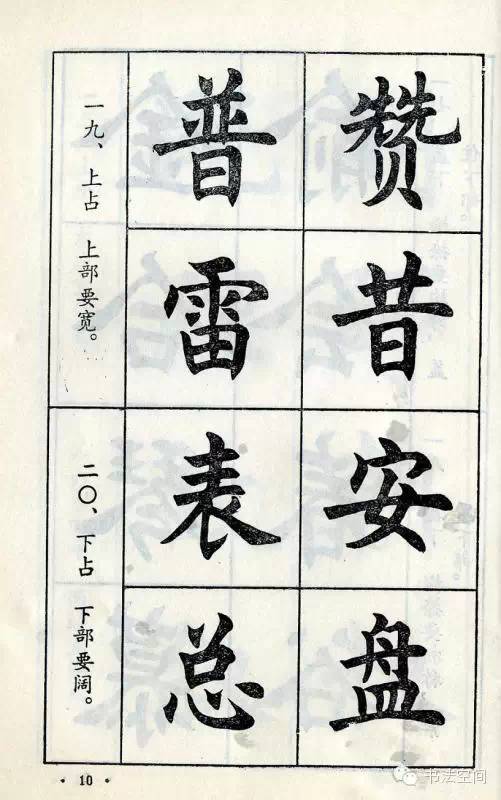 一九、上占 上部要宽。
普 赞
雷 昔
二〇、下占 下部要阔。
表 安
总 盘
· 10 ·
书法空间